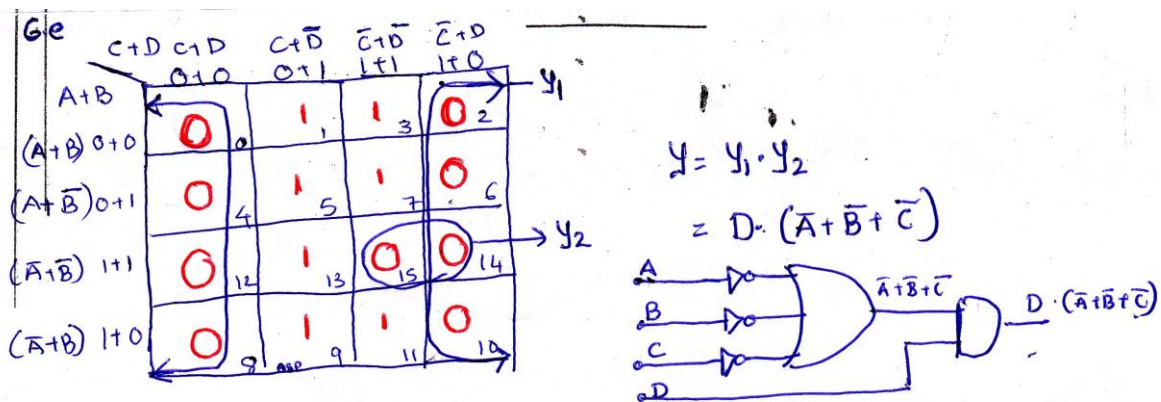 Ge
C+D C+D C+D̅ C̅+D̅ C̅+D
0+0 0+1 1+1 1+0
A+B
(A+B) 0+0 0 0 1 1 1 3 0 2 Y1
(A+B̅) 0+1 0 4 1 5 1 7 0 6
(A̅+B̅) 1+1 0 12 1 13 0 15 0 14 Y2
(A̅+B) 1+0 0 8 1 9 1 11 0 10
Y = Y1 · Y2
= D · (A̅+B̅+C̅)
A
B
C
D
A̅+B̅+C̅
D · (A̅+B̅+C̅)